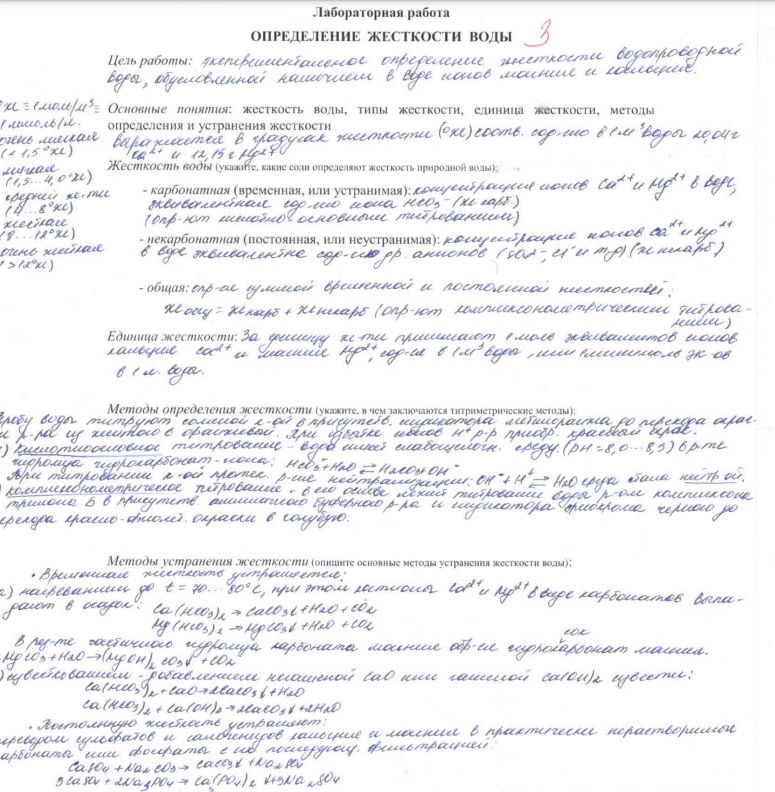 Лабораторная работа
ОПРЕДЕЛЕНИЕ ЖЕСТКОСТИ ВОДЫ 3
Цель работы: экспериментальное определение жесткости водопроводной
воды, обусловленной наличием в воде ионов магния и кальция.
°Ж = 1 моль/м³ =
1 ммоль/л.
очень мягкая
(< 1,5°Ж)
мягкая
(1,5...4,0°Ж)
средней ж-ти
(4...8°Ж)
жесткая
(8...12°Ж)
очень жесткая
(>12°Ж)
Основные понятия: жесткость воды, типы жесткости, единица жесткости, методы
определения и устранения жесткости
выражается в градусах жесткости (°Ж) соотв. сод-нию в 1 м³ воды 20,04 г
Ca²⁺ и 12,15 г Mg²⁺
Жесткость воды (укажите, какие соли определяют жесткость природной воды):
- карбонатная (временная, или устранимая): концентрация ионов Ca²⁺ и Mg²⁺ в воде,
эквивалентная сод-нию иона HCO₃⁻ (Жкарб)
(опр-ют кислотно основным титрованием)
- некарбонатная (постоянная, или неустранимая): концентрация ионов Ca²⁺ и Mg²⁺
в воде эквивалентна сод-нию др. анионов (SO₄²⁻, Cl⁻ и т.д) (Жнекарб)
- общая: опр-ся суммой временной и постоянной жесткостей:
Жобщ = Жкарб + Жнекарб (опр-ют комплексонометрическим титрова-
нием)
Единица жесткости: За единицу ж-ти принимают 1 моль эквивалентов ионов
кальция Ca²⁺ и магния Mg²⁺, сод-ся в 1 м³ воды, или 1 миллимоль эк-ов
в 1 л. воды.
Методы определения жесткости (укажите, в чем заключаются титриметрические методы):
Пробу воды титруют соляной к-ой в присутств. индикатора метилоранжа до перехода окрас-
ки р-ра из желтого в оранжевый. При избытке ионов H⁺ р-р приобр. красный окрас.
Кислотноосновное титрование - вода имеет слабощелочн. среду (pH=8,0...8,5) в р-те
гидролиза гидрокарбонат-иона: HCO₃⁻+H₂O ⇄ H₂CO₃+OH⁻
При титровании к-ой протек. р-ция нейтрализации: OH⁻+H⁺ ⇄ H₂O среда стала нейтр ой.
комплексонометрическое титрование - в его основе лежит титрование воды р-ом комплексона
трилона Б в присутств. аммиачного буферного р-ра и индикатора эриохрома черного до
перехода красно-фиолет. окраски в голубую.
Методы устранения жесткости (опишите основные методы устранения жесткости воды):
• Временная жесткость устраняется:
а) нагреванием до t = 70...80°C, при этом катионы Ca²⁺ и Mg²⁺ в виде карбонатов выпа-
дают в осадок: Ca(HCO₃)₂ → CaCO₃↓ + H₂O + CO₂
Mg(HCO₃)₂ → MgCO₃↓ + H₂O + CO₂
В рез-те частичного гидролиза карбоната магния обр-ся гидроксокарбонат магния.
2MgCO₃ + H₂O → (MgOH)₂CO₃↓ + CO₂
известкованием - добавлением негашеной CaO или гашеной Ca(OH)₂ извести:
Ca(HCO₃)₂ + CaO → 2CaCO₃↓ + H₂O
Ca(HCO₃)₂ + Ca(OH)₂ → 2CaCO₃↓ + 2H₂O
• Постоянную жесткость устраняют:
переводом сульфатов и галогенидов кальция и магния в практически нерастворимые
карбонаты или фосфаты с их последующ. фильтрацией:
CaSO₄ + Na₂CO₃ → CaCO₃↓ + Na₂SO₄
3CaSO₄ + 2Na₃PO₄ → Ca₃(PO₄)₂↓ + 3Na₂SO₄